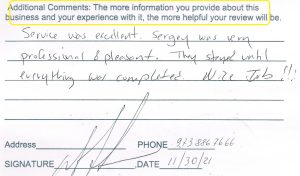 Additional Comments: The more information you provide about this
business and your experience with it, the more helpful your review will be.
Service was excellent. Sergey was very
professional & pleasant. They stayed until
everything was completed. Nice Job!!!
Address PHONE 9738867666
SIGNATURE DATE 11/30/21